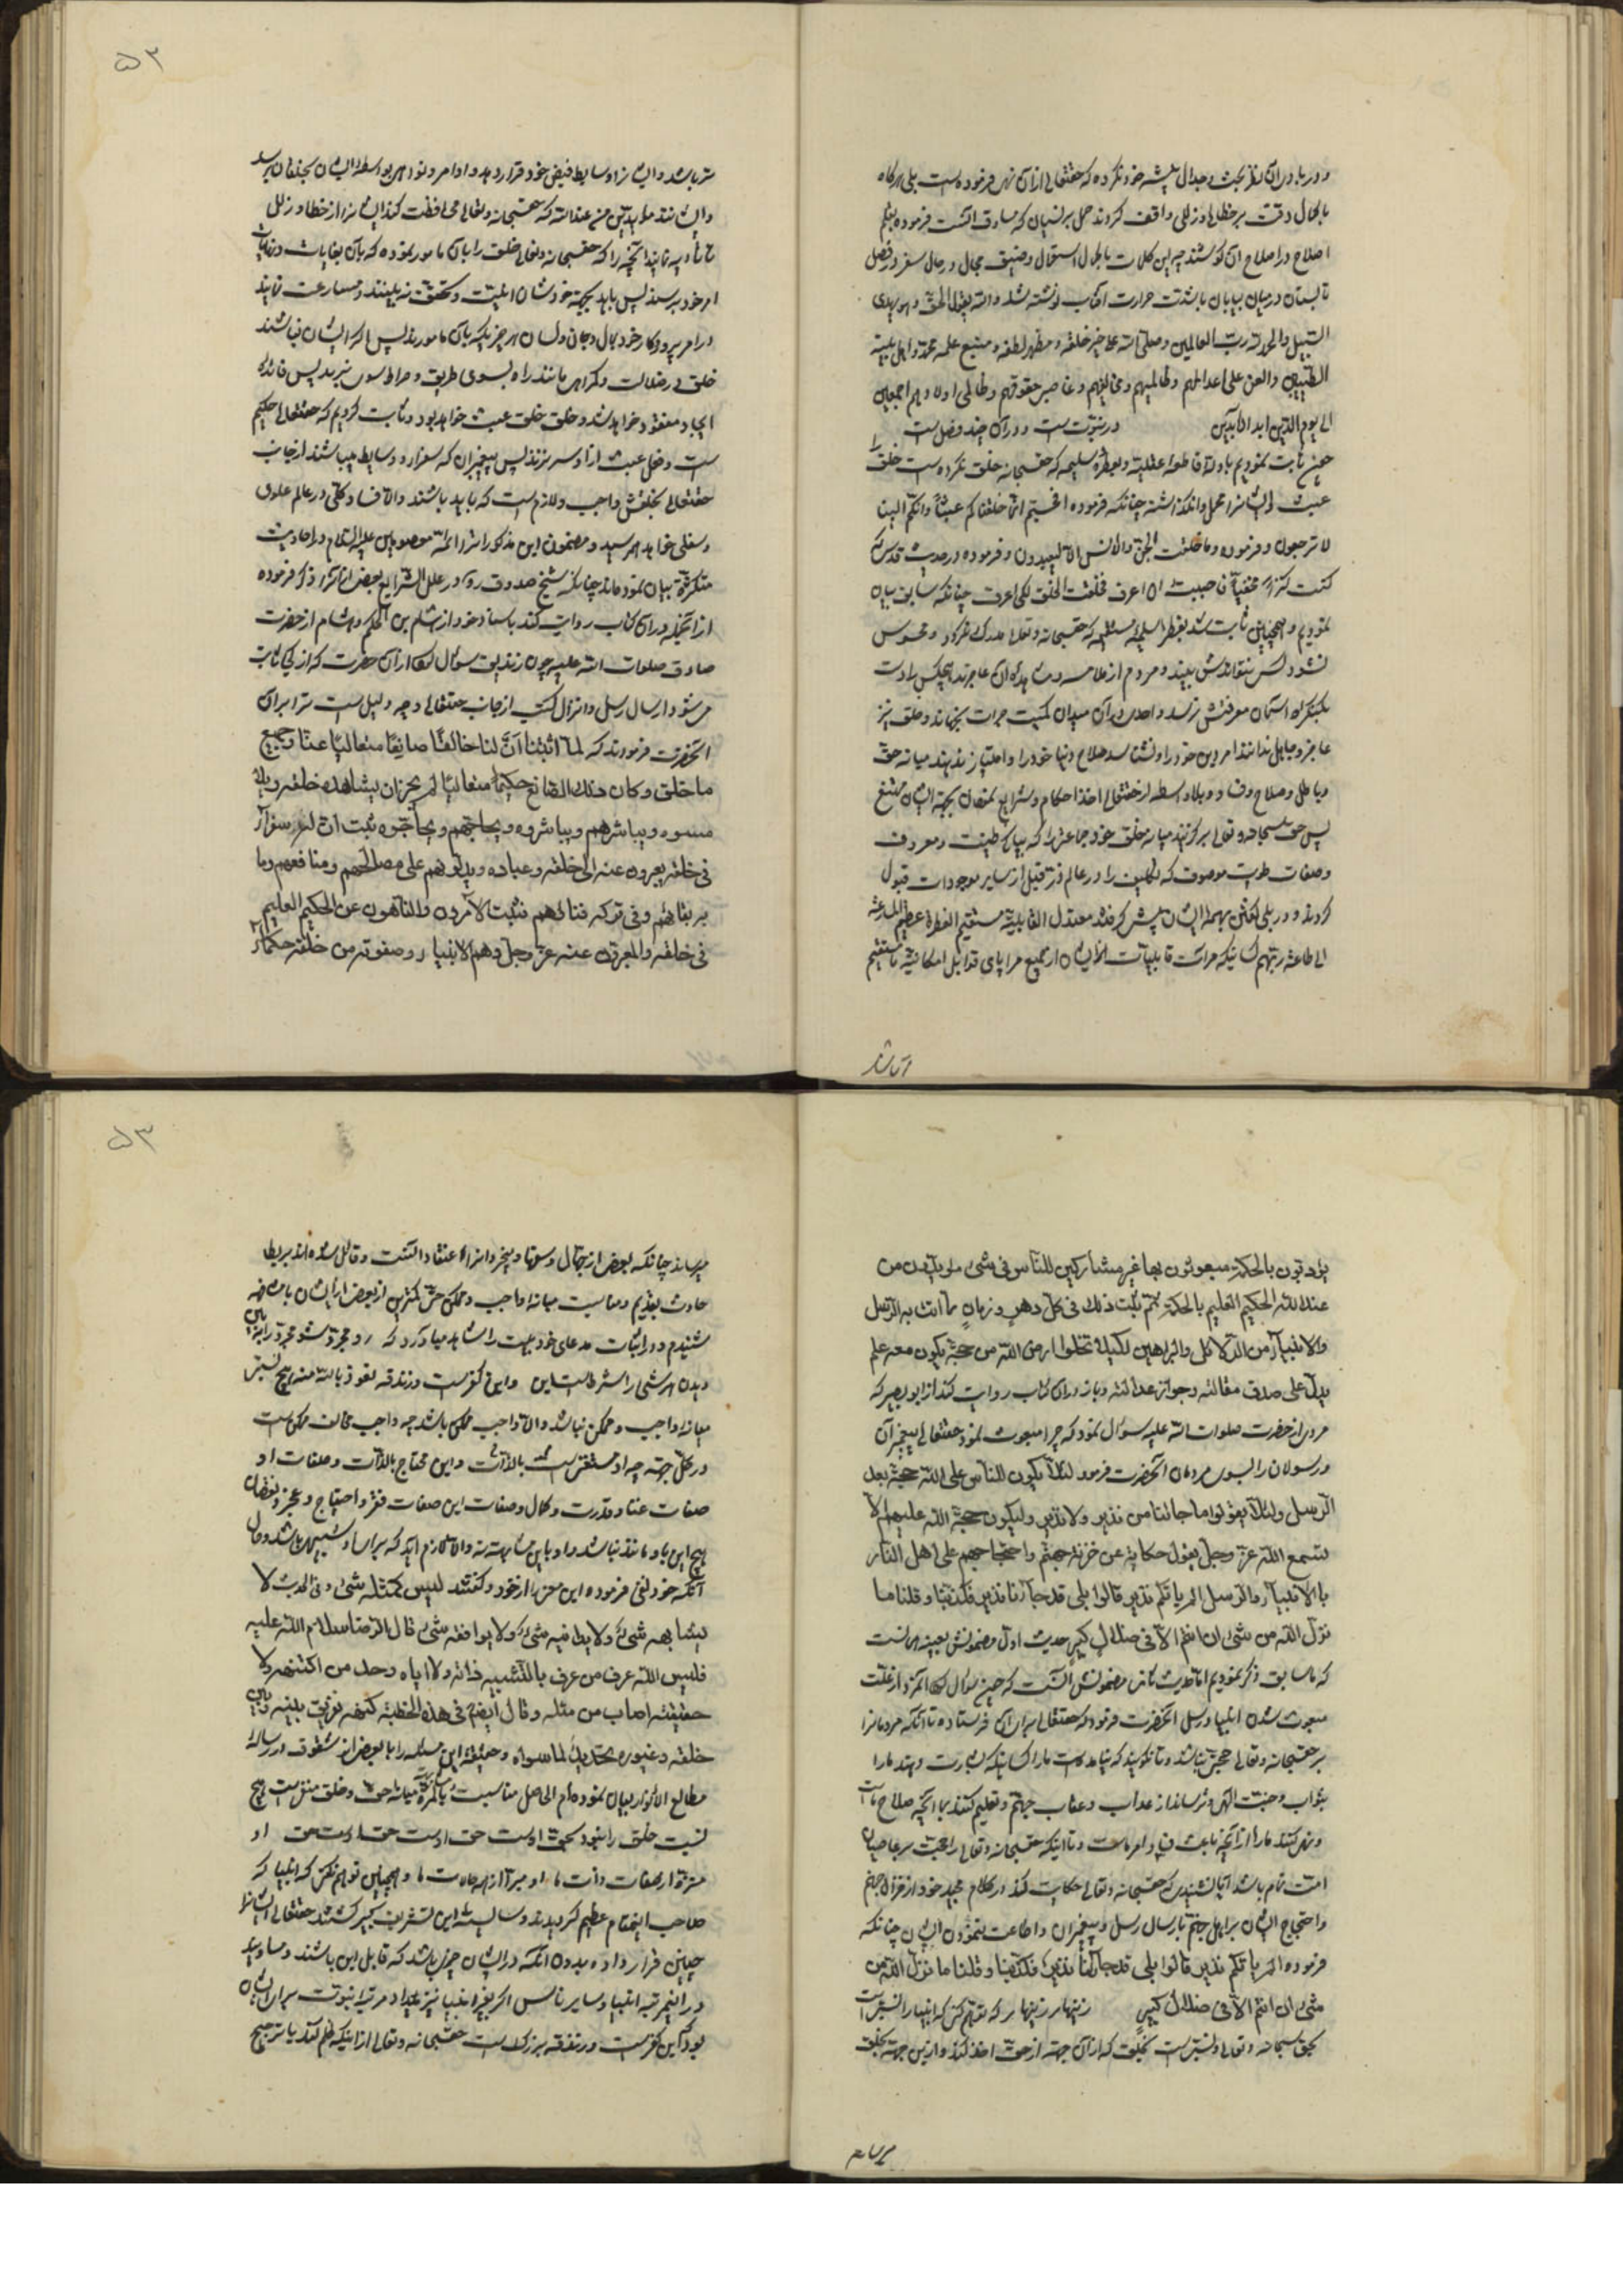 و در باد در ان نظر بحث و جدال پیشه خود نکرده که حقتعالی از ان نهی فرموده است بلی هرکاه
با کمال دقت بر خطا و زللی واقف کردند حمل بر نسیان که مساوق انسست فرموده بقلم
اصلاح در اصلاح ان کوشند چه این کلمات با کمال استعجال و ضیق مجال و در حال سفر و در فصل
تابستان در میان بیابان با شدت حرارت افتاب نوشته شد والله یقول الحق و هو یهدی
السبیل والحمد لله رب العالمین وصلی الله علی خیر خلقه و مظهر لطفه و منبع علمه محمد و اهل بیته
الطیبین والعن علی اعدائهم و ظالمیهم و مخالفیهم و غاصبی حقوقهم اجمعین
الی یوم الدین ابد الابدین در نبوت است و در ان چند فصل است
چون ثابت نمودیم بادله قاطعه عقلیه و بفطره سلیمه که حقسبحانه خلق نکرده است خلق را
عبث و ایشانرا مهمل وانکذاشته چنانکه فرموده افحسبتم انما خلقناکم عبثا وانکم الینا
لا ترجعون و فرموده وما خلقت الجن والانس الا لیعبدون و فرموده در حدیث قدسی
کنت کنزا مخفیا فاحببت ان اعرف فخلقت الخلق لکی اعرف چنانکه سابق بیان
نمودیم و همچنین ثابت شد بفطره سلیمه که حقسبحانه و تعالی مدرک نمیکردد و محسوس
نشود کس نتواندش بیند و مردم از ملامسه و مشاهده ان عاجزند هیچکس را دست
بکنکره آسمان معرفتش نرسد و احدی در آن میدان کمیت جرات نجهاند و خلق نیز
عاجز و جاهل ندانند امر دین خود را و نشناسد صلاح دنیا خود را و امتیاز ندهند میانه حق
و باطل و صلاح و فساد و بلا واسطه از حقتعالی اخذ احکام و شرایع نمودن بجهة ایشان ممتنع
پس حق سبحانه و تعالی برکزید میانه خلق خود جماعتی را که بپاکی طینت معروف
وصفات طویت موصوف که تکلیف را در عالم ذر قبل از سایر موجودات قبول
کردند و در بلی کفتن بهمه ایشان پیش کرفتند معتدل القابلیة مستقیم الفطرة عظیم المسارعة
الی طاعة ربهم کسانیکه مرآت قابلیات ایشان از جمیع مرایای قوابل امکانیة مستقیم
تر باشد و ایشانرا وسایط فیض خود قرار دهد و اوامر و نواهی بواسطه ایشان بخلقان برسد
وایشانند مؤیدین من عندالله که حقسبحانه و تعالی محافظت کند ایشانرا از خطا و زلل
تا تادیه نمایند آنچه را که حقسبحانه و تعالی خلق را بان مامور نموده که بان بغایات و نهایات
امر خود برسند پس باید بجهة خودشان اثبات و تحقق نه بینند و مسارعت نمایند
در امر پروردکار خود بمال و جان و لسان هر چیزیکه بان مامورند پس اکر ایشان نباشند
خلق در ضلالت و کمراهی مانند راه بسوی طریق و صراط سوی نبرند پس فائده
ایجاد مفقود خواهد شد و خلق خلق عبث خواهد بود و ثابت کردیم که حقتعالی حکیم
است و فعل عبث از او سر نزند پس پیغمبران که سفرا و وسایط میباشند از جانب
حقتعالی بخلقش واجب و لازم است که باید باشند والا فساد کلی در عالم علوی
و سفلی خواهد رسید و مضمون این مذکورات را ائمه معصومین علیهم السلام در احادیث
متکثره بیان نموده اند چنانکه شیخ صدوق ره در علل الشرایع بعض از انرا ذکر فرموده
از انجمله در ان کتاب روایت کند باسناد خود از هشام بن الحکم و هشام از حضرت
صادق صلوات الله علیه چون زندیق سؤال کرد از ان حضرت که از کجا ثابت
میشود ارسال رسل و انزال کتب از جانب حقتعالی و چه دلیل است ترا بر ان
انحضرت فرمودند که لما اثبتنا ان لنا خالقا صانعا متعالیا عنا وعن جمیع
ما خلق وکان ذلک الصانع حکیما متعالیا لم یجز ان یشاهده خلقه ولا
یلمسوه ویباشرهم ویباشروه ویحاجهم ویحاجوه ثبت ان له سفرآء
فی خلقه یعبرون عنه الی خلقه وعباده ویدلونهم علی مصالحهم ومنافعهم وما
به بقائهم وفی ترکه فنائهم فثبت الآمرون والناهون عن الحکیم العلیم
فی خلقه والمعبرون عنه عز وجل وهم الانبیاء وصفوته من خلقه حکماء
یؤدبون بالحکمة مبعوثون بها غیر مشارکین للناس فی شیء مؤیدون من
عند الله الحکیم العلیم بالحکمة ثم ثبت ذلک فی کل دهر وزمان ما اتت به الرسل
والانبیآء من الدلائل والبراهین لکیلا تخلوا ارض الله من حجة یکون معه علم
یدل علی صدق مقالته وجواز عدالته و باز در ان کتاب روایت کند از ابو بصیر که
مردی از حضرت صلوات الله علیه سؤال نمود که چرا مبعوث نمود حقتعالی پیغمبران
و رسولان را بسوی مردمان انحضرت فرمود لئلا یکون للناس علی الله حجة بعد
الرسل ولئلا یقولوا ما جائنا من نذیر ولا نذیر ولیکون حجة الله علیهم الا
تسمع الله عز وجل یقول حکایة عن خزنة جهنم واحتجاجهم علی اهل النار
بالانبیآء والرسل الم یاتکم نذیر قالوا بلی قد جآءنا نذیر فکذبنا وقلنا ما
نزل الله من شیء ان انتم الا فی ضلال کبیر حدیث اول مضمونش بعینه همانست
که ما سابق ذکر نمودیم اما حدیث ثانی مضمونش آنست که چون سؤال کرد آنمرد از علت
مبعوث شدن انبیا و رسل انحضرت فرمود که حقتعالی برای آن فرستاده تا آنکه مردمانرا
بر حقسبحانه و تعالی حجتی نباشد و تا نکویند که نیامده است ما را کسانیکه بشارت دهند ما را
بثواب و جنت الهی و ترسانند از عذاب و عقاب جهنم و تعلیم کنند بما آنچه صلاح ماست
و نهی کنند ما را از آنچه باعث فساد امر ماست و تا اینکه حقسبحانه و تعالی را حجت بر عاصیان
امت تمام باشد آیا نشنیدی که حقسبحانه و تعالی حکایت کند در کلام مجید خود از خزان جهنم
و احتجاج ایشان بر اهل جهنم بارسال رسل و پیغمبران و اطاعت ننمودن ایشان چنانکه
فرموده الم یاتکم نذیر قالوا بلی قد جآءنا نذیر فکذبنا وقلنا ما نزل الله من
شیء ان انتم الا فی ضلال کبیر زینهار زینهار که توهم نکنی که انبیا را نسبتی است
بحق سبحانه و تعالی و نسبتی است بخلق که از ان جهة از حق اخذ کند و از این جهة بخلق
میرساند چنانکه بعض از جهال و سفها و بیخردانرا اعتقاد انست و قائل شده اند بربط
حادث بقدیم و مناسبت میانه واجب و ممکن حتی کمترین از بعض از ایشان بالمشافهه
شنیدم و در اثبات مدعای خود بیت را شاهد میاورد که رو مجرد شو مجرد را ببین
دیدن هر شی را شرطست این و این کفر است و زندقه نعوذ بالله منه هیچ نسبتی
میانه واجب و ممکن نباشد والا واجب ممکن باشد چه واجب مخالف ممکن است
در کل جهة چه او مستغنی است بالذات و این محتاج بالذات و صفات او
صفات غنا و قدرت و کمال و صفات این صفات فقر و احتیاج و عجز و نقصان
هیچ این باو مانند نباشد و او باین مشابهت نه والا لازم آید که برای او شبیهی باشد و حال
آنکه خود نفی فرموده این معنی را از خود و کفته لیس کمثله شیء وفی الحدیث لا
یشابهه شیء ولا یطابقه شیء ولا یوافقه شیء قال الرضا سلام الله علیه
فلیس الله عرف من عرف بالتشبیه ذاته ولا ایاه وحد من اکتنهه ولا
حقیقته اصاب من مثله وقال ایضا فی هذه الخطبة کنهه تفریق بینه وبین
خلقه وغیوره تحدید لما سواه و حقیقت این مسئله را با بعض از شقوق در رساله
مطالع الانوار بیان نموده ام الحاصل مناسبت بالمره میانه حق و خلق منتفی است هیچ
نسبت خلق را نبود بحق اوست حق اوست حق اوست حق او
منزه از صفات و ذات ما او مبرا از همه حالات ما و همچنین توهم نکنی که انبیا که
صاحب اینمقام عظیم کردیدند و شایسته این تشریف کبیر کشتند حقتعالی ایشانرا
چنین قرار داده بدون آنکه در ایشان چیزی باشد که قابل این باشند و مساوی
در اینمرتبه انبیا و سایر ناس اکر بغیر انبیا نیز میداد مرتبه نبوت برای ایشان
بود که این کفر است و زندقه بزرکست حقسبحانه و تعالی از اینکه ظلم کند یا ترجیح